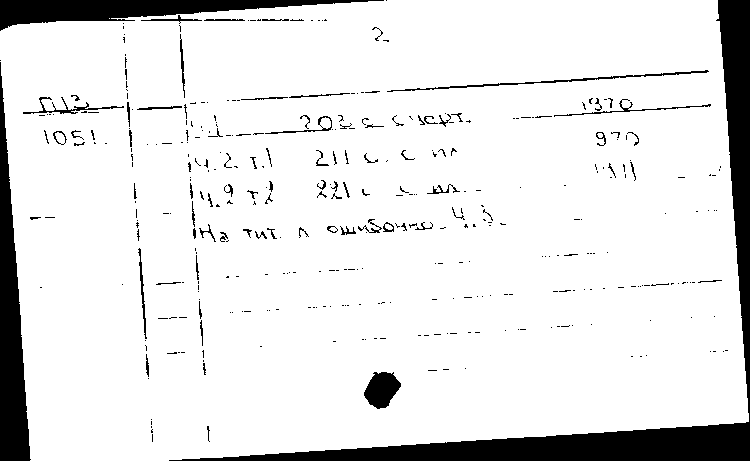 2
П13
1051. ч.1 203 с. с черт. 1970
ч.2. т.1 211 с. с ил 970
ч.2 т2 221 с с ил.
На тит. л ошибочно. Ч.3.